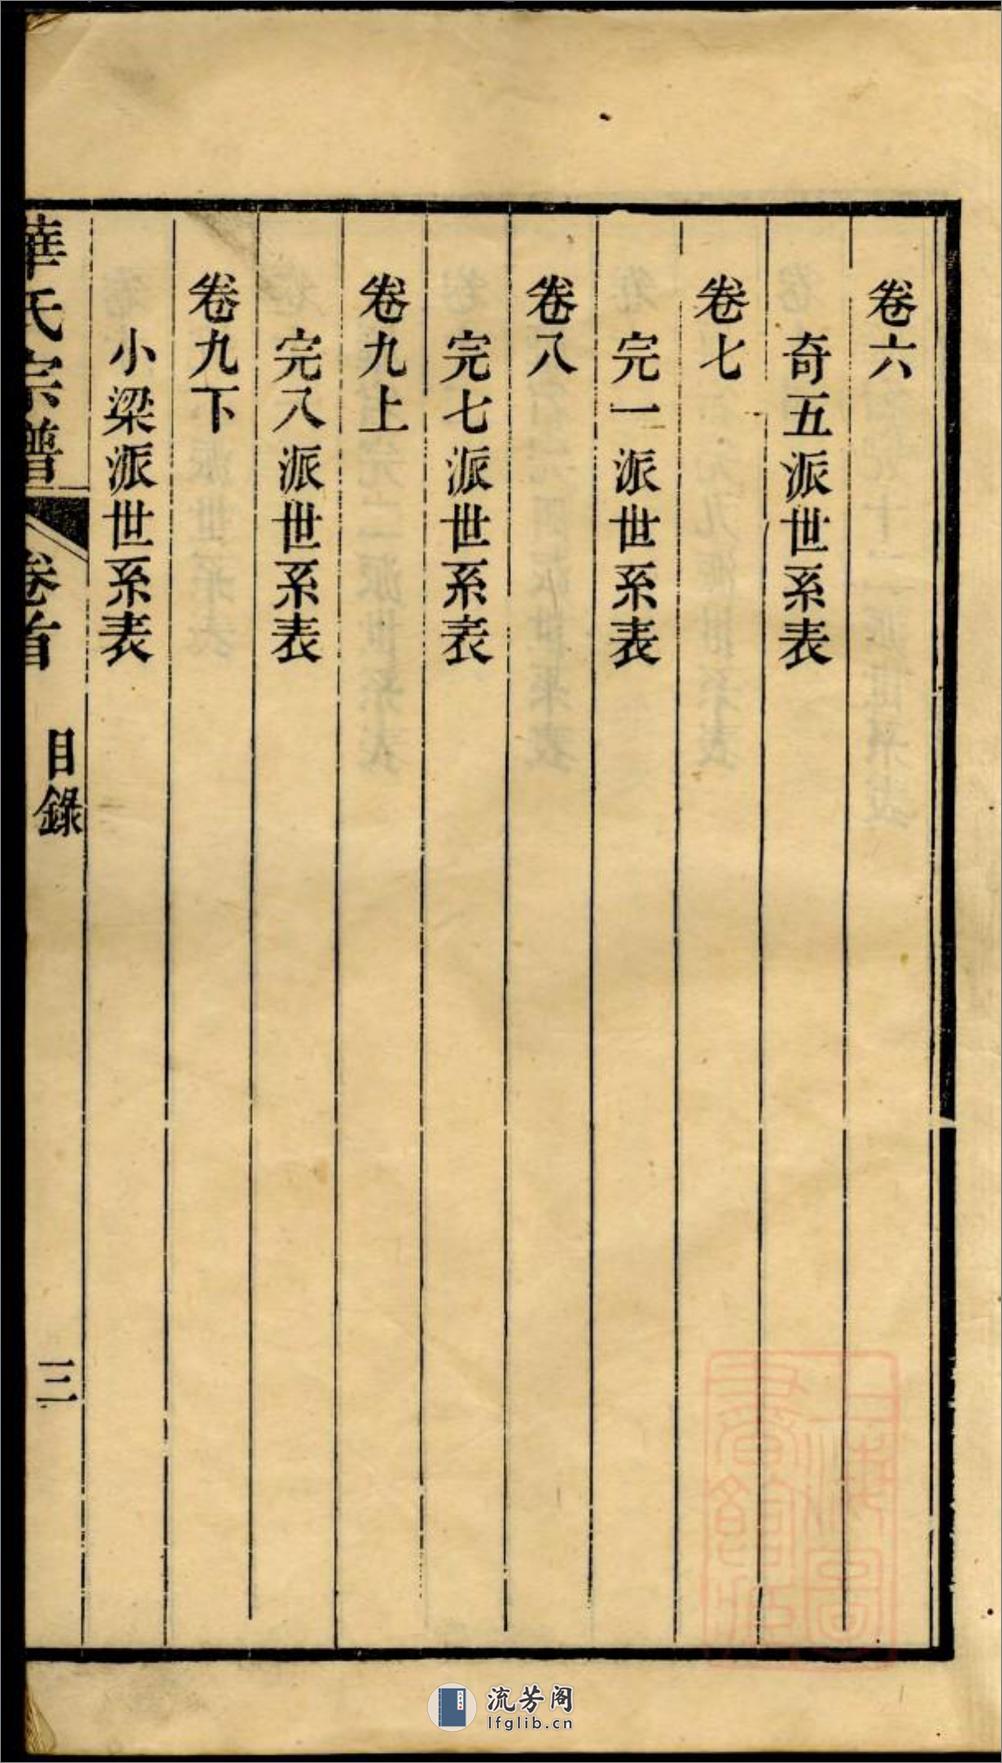 卷六
奇五派世系表
卷七
完一派世系表
卷八
完七派世系表
卷九上
完八派世系表
卷九下
小梁派世系表
華氏宗譜
卷首
目錄
三
流芳阁
lfglib.cn